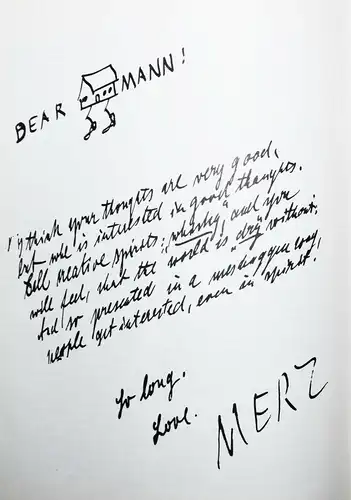 DEAR MANN!
I think your thoughts are very good,
but who is interested in good thoughts.
Call creative spirits: „whisky" and you
will feel, that the world is „dry" without.
And so presented in a way,
people get interested, even in spirit.
So long.
Love.
MERZ